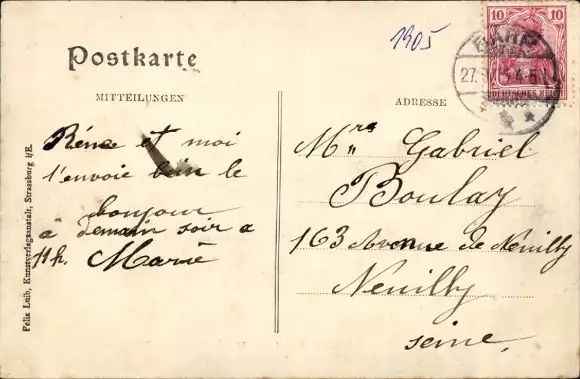 1905
10 10
27. 5.4-5
DEUTSCHES REICH
Postkarte
MITTEILUNGEN
ADRESSE
Réne et moi
t'envoie bien le
bonjour
à demain soir a
11h. Marie
Mme Gabriel
Boulay
163 Avenue de Neuilly
Neuilly
seine.
Felix Luib, Kunstverlagsanstalt, Strassburg i/E.